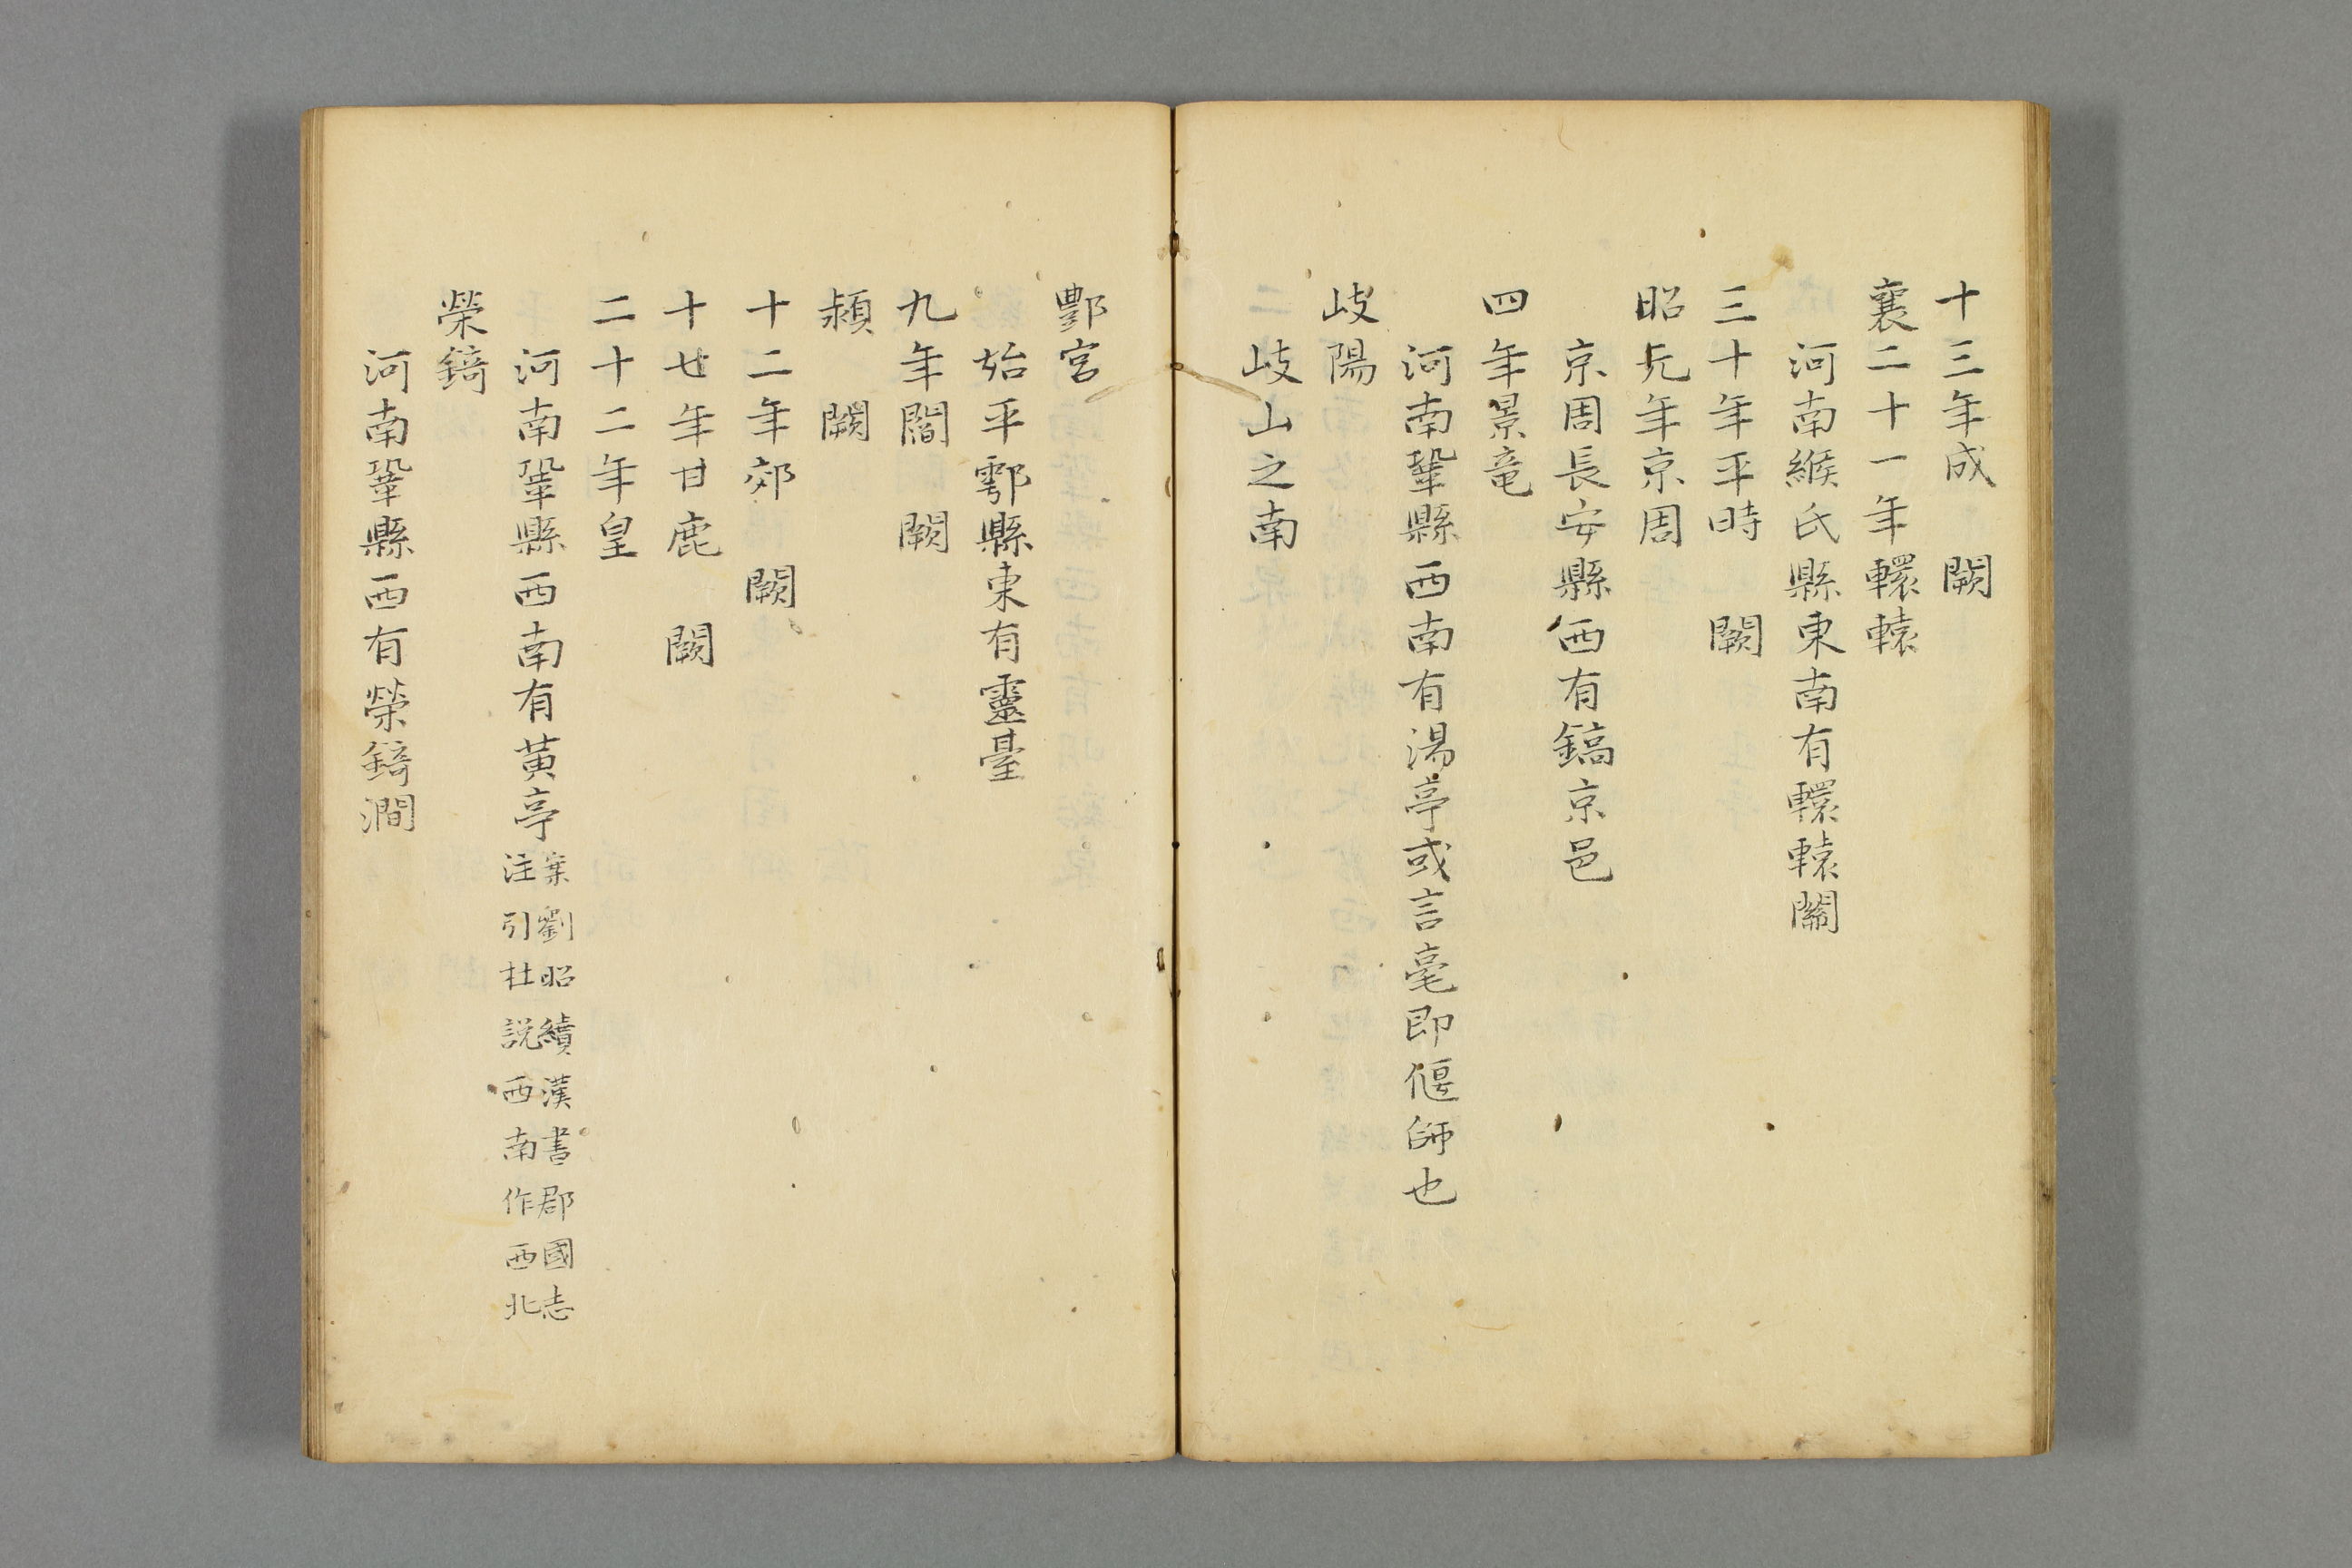 十三年成　闕
襄二十一年轘轅
河南緱氏縣東南有轘轅關
三十年平畤　闕
昭元年京周
京周長安縣西有鎬京邑
四年景亳
河南鞏縣西南有湯亭或言亳即偃師也
岐陽
岐山之南
酆宮
始平鄠縣東有靈臺
九年閻　闕
潁　闕
十二年郊　闕
十七年甘鹿　闕
二十二年皇
河南鞏縣西南有黃亭案劉昭續漢書郡國志
注引杜說西南作西北
榮錡
河南鞏縣西有榮錡澗